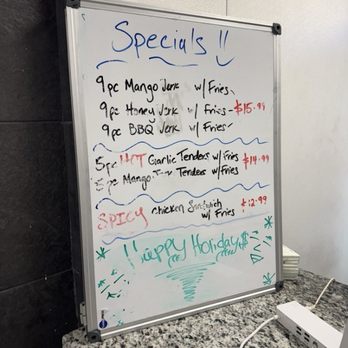 Specials !!
9pc Mango Jerk w/ Fries
9pc Honey Jerk w/ Fries - $15.99
9pc BBQ Jerk w/ Fries
5pc HOT Garlic Tenders w/ Fries $14.99
5pc Mango Tenders w/ Fries
SPICY Chicken Sandwich
w/ Fries
Happy Holidays